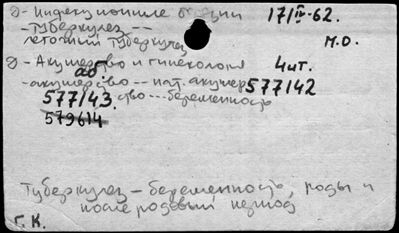 д - Инфекционные болезни 17/IV-62.
- Туберкулез --
легочный туберкулез М.О.
д - Акушерство и гинекология 4шт.
аб
- акушерство -- пат. акушер 577142
577143 ство --- беременность
579614
Туберкулез - беременность, роды и
послеродовый период
Г. К.